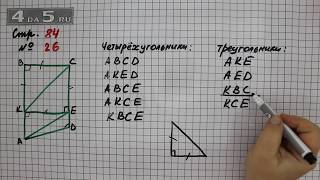 4DA5.RU
Стр. 84
№ 26
Четырёхугольники:
ABCD
AKED
ABCE
AKCE
KBCE
Треугольники:
AKE
AED
KBC
KCE
B C
K E
D
A